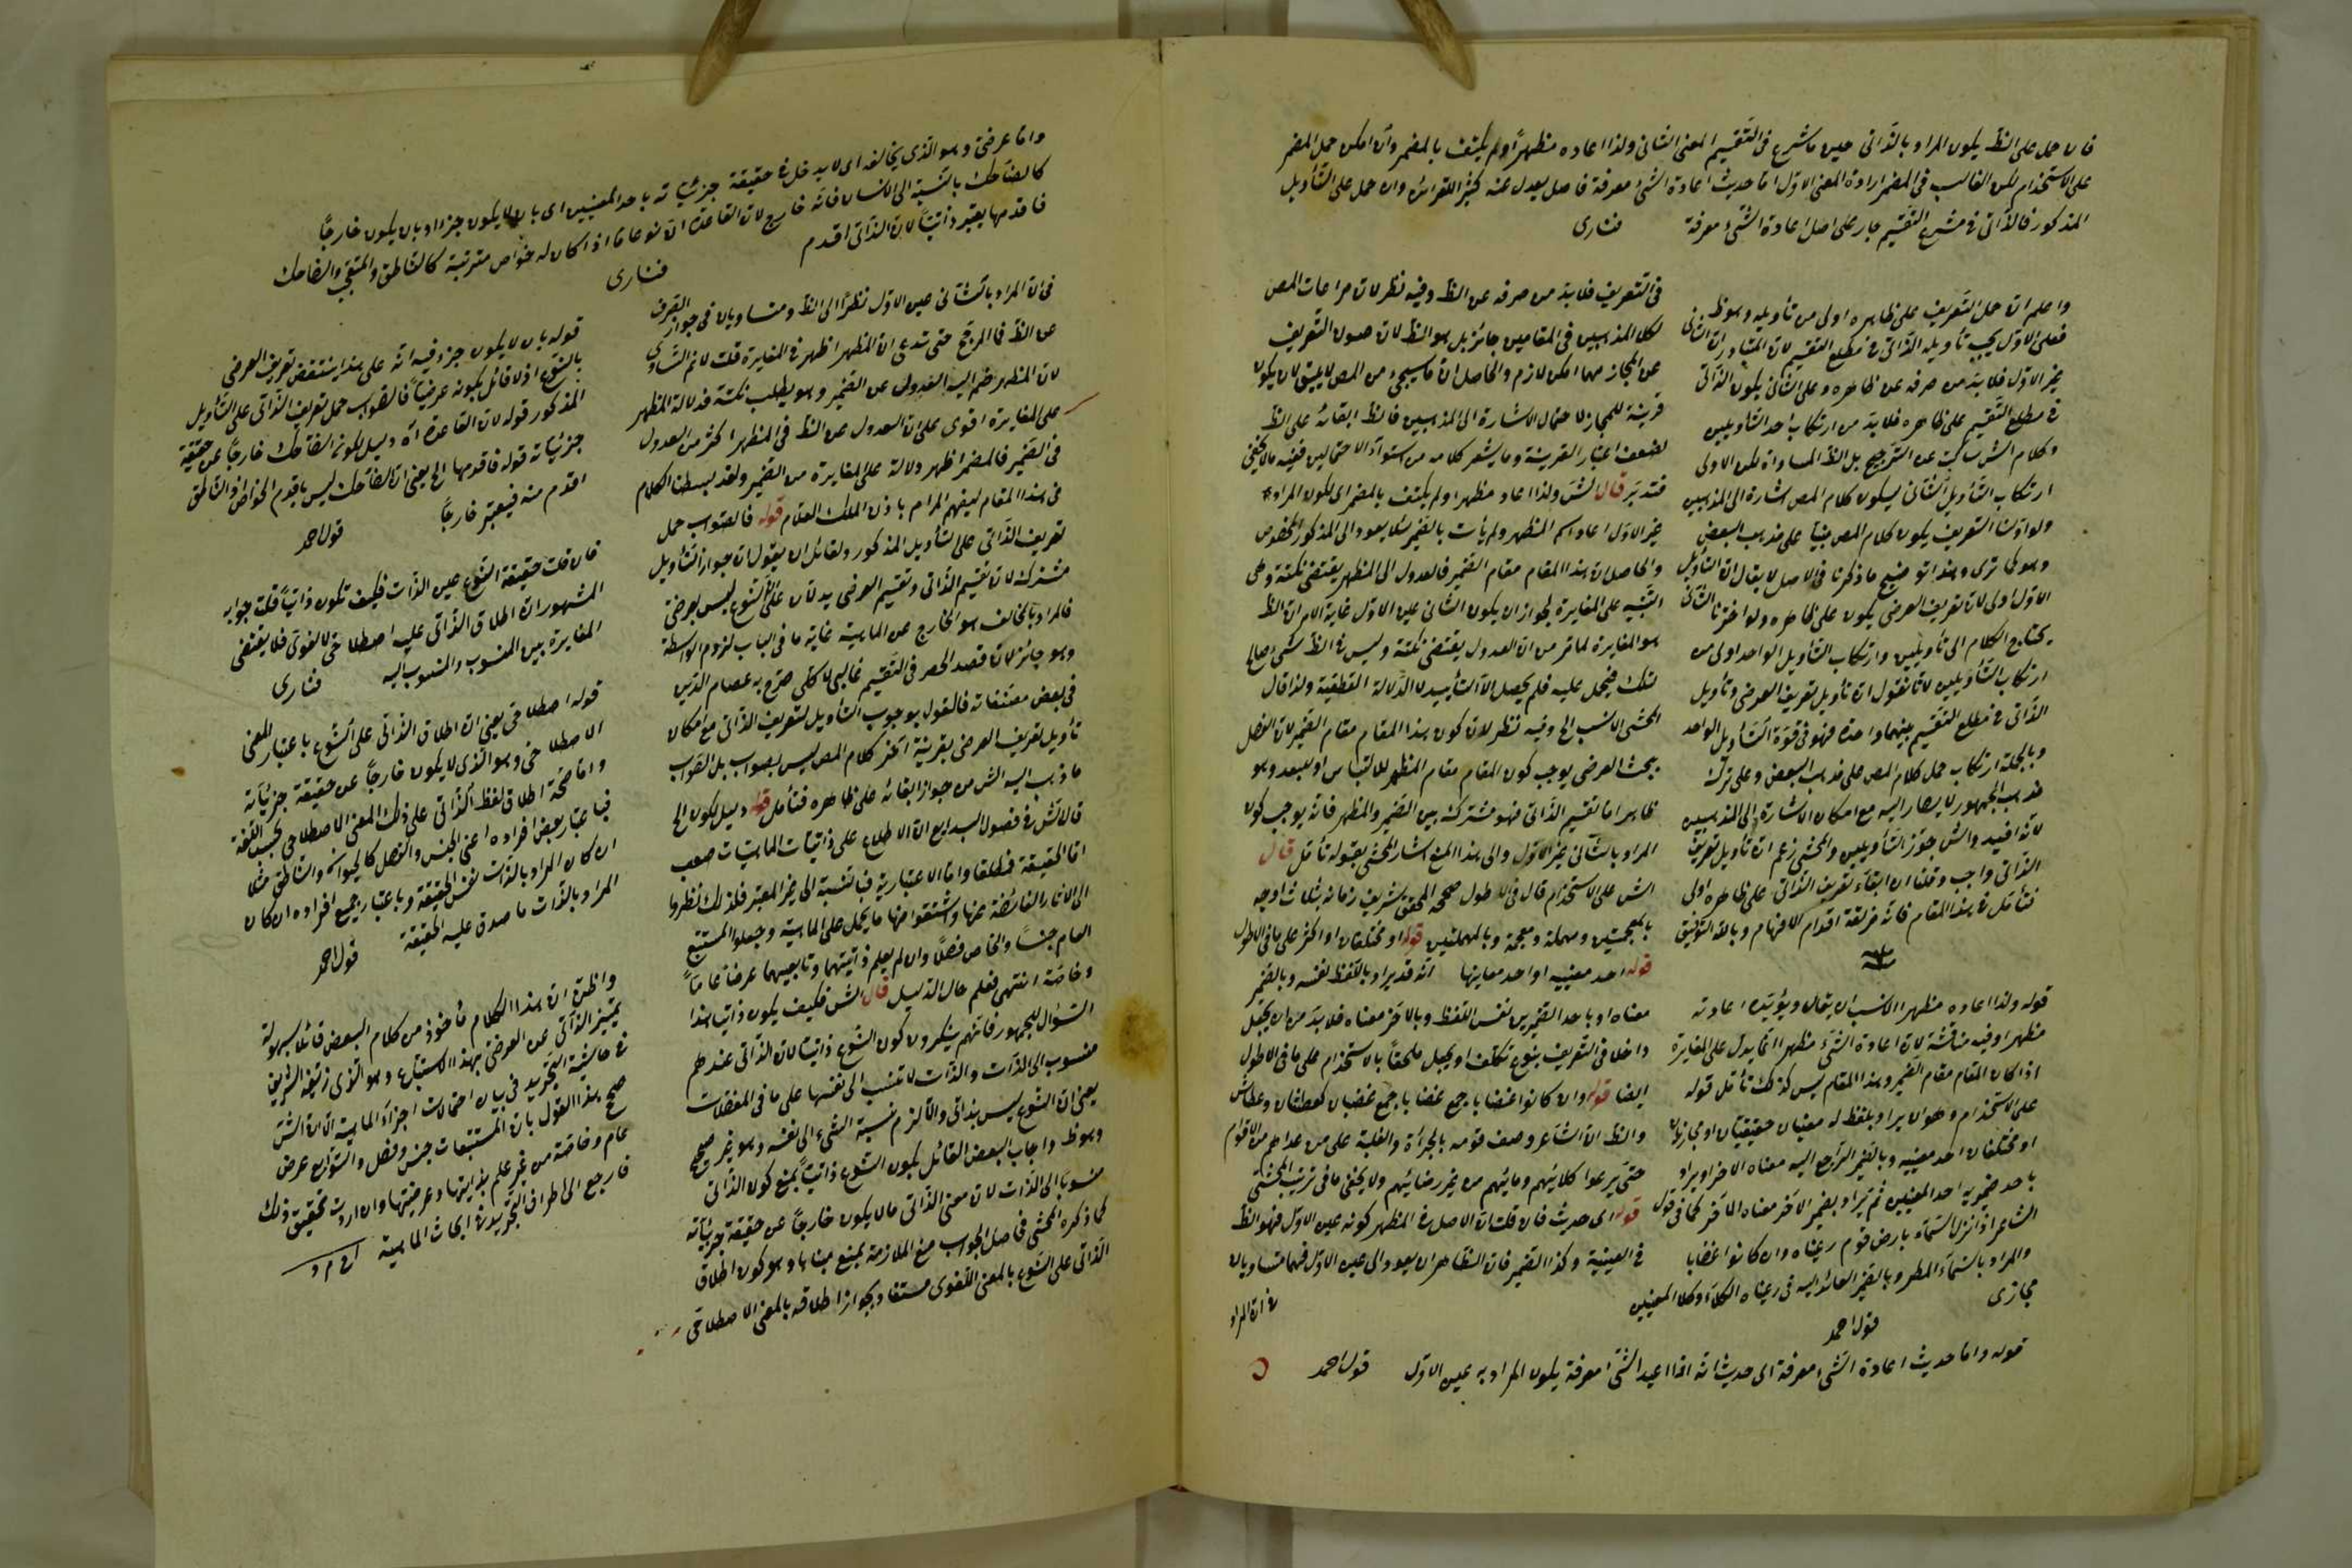 فان حمل على الظ يكون المراد بالذاتى حين ما شرع فى التقسيم المعنى الثانى ولذا اعاده مظهرا ولم يكتف بالمضمر وان امكن حمل المضمر
على الاستخدام لكن الغالب فى المضمر ارادة المعنى الاول اما حديث اعادة الشئ معرفة فاصل يعدل عنه كثيرا للقرائن وان حمل على التأويل
المذكور فالذاتى فى مشرع التقسيم جار على اصل اعادة الشئ معرفة فنارى
واعلم ان حمل التعريف على ظاهره اولى من تأويله وهو ظ
فعلى الاول يجب تأويله الذاتى فى مطلع التقسيم لان المتبادر ان الثانى
غير الاول فلا بد من صرفه عن ظاهره وعلى الثانى يكون الذاتى
فى مطلع التقسيم على ظاهره فلا بد من ارتكاب احد التأويلين
وكلام الش ساكت عن الترجيح بل الظ المساواة لكن الاولى
ارتكاب التأويل الثانى ليكون كلام المص اشارة الى المذهبين
ولو اولنا التعريف يكون كلام المص مبنيا على مذهب البعض
وهو كما ترى وهذا توضيح ما ذكرنا فى الاصل لا يقال ان التأويل
الاول اولى لان تعريف العرضى يكون على ظاهره ولو اخترنا الثانى
يحتاج الكلام الى تأويلين وارتكاب التأويل الواحد اولى من
ارتكاب التأويلين لانا نقول ان تأويل تعريف العرضى وتأويل
الذاتى فى مطلع التقسيم بينهما واحدة فهو فى قوة التأويل الواحد
وبالجملة ارتكاب حمل كلام المص على مذهب البعض وعلى ترك
مذهب الجمهور لا يصار اليه مع امكان الاشارة الى المذهبين
لانه افيد والش جوز التأويلين والمحشى زعم ان تأويل تعريف
الذاتى واجب وقلنا ان ابقاء تعريف الذاتى على ظاهره اولى
فتأمل فى هذا المقام فانه مزلقة اقدام الافهام وبالله التوفيق
قوله ولذا اعاده مظهرا الانسب ان يقال ويؤيده اعادته
مظهرا وفيه مناقشة لان اعادة الشئ مظهرا انما يدل على المغايرة
اذا كان المقام مقام الضمير وهذا المقام ليس كذلك تأمل قوله
على الاستخدام وهو ان يراد بلفظ له معنيان حقيقيان او مجازيان
او مختلفان احد معنييه وبالضمير الراجع اليه معناه الاخر او يراد
باحد ضميريه احد المعنيين ثم يراد بضمير الاخر معناه الاخر كما فى قول
الشاعر اذا نزل السماء بارض قوم رعيناه وان كانوا غضابا
والمراد بالسماء المطر وبالضمير العائد اليه فى رعيناه الكلاء وكلا المعنيين
مجازى قول احمد
قوله واما حديث اعادة الشئ معرفة اى حديث انه اذا اعيد الشئ معرفة يكون المراد به عين الاول قول احمد
فى التعريف فلا بد من صرفه عن الظ وفيه نظر لان مراعات المص
لكلا المذهبين فى المقامين جائز بل هو الظ لان صون التعريف
عن المجاز مهما امكن لازم والحاصل ان ما سيجئ من المص لا يليق لان يكون
قرينة للمجاز لاحتمال الاشارة الى المذهبين فالظ ابقائه على الظ
لضعف اعتبار القرينة وما يشعر كلامه من استواء الاحتمالين ففيه ما لا يخفى
فتدبر قال الش ولذا اعاد مظهرا ولم يكتف بالمضمر اى لكون المراد
غير الاول اعاد اسم المظهر ولم يأت بالضمير لئلا يعود الى المذكور المخصوص
والحاصل ان هذا المقام مقام الضمير فالعدول الى المظهر يقتضى نكتة وهى
التنبيه على المغايرة لجواز ان يكون الثانى عين الاول غاية الامر ان الظ
هو المغايرة لما مر من ان العدول يقتضى نكتة وليس فى الظ شئ صالح
لتلك فيحمل عليه فلم يحصل الا التأييد لا الدلالة القطعية ولذا قال
المحشى الانسب الخ وفيه نظر لان كون هذا المقام مقام الضمير لان الفصل
ببحث العرضى يوجب كون المقام مقام المظهر للالتباس او للبعد وهو
ظاهر اما تقسيم الذاتى فهو مشترك بين الضمير والمظهر فانه يوجب كون
المراد بالثانى غير الاول والى هذا المنع اشار المحشى بقوله تأمل قال
الش على الاستخدام قال فى الاطول صححه المحقق شريف زمانه بثلاث اوجه
بالمعجمتين ومهملة ومعجمة وبالمهملتين قوله او مختلفان او اكثر على ما فى الاطول
قوله احد معنييه او احد معانيها انه قد يراد باللفظ نفسه وبالضمير
معناه او باحد الضميرين نفس اللفظ وبالاخر معناه فلا بد من ان يجعل
داخلا فى التعريف بنوع تكلف او يجعل ملحقا بالاستخدام على ما فى الاطول
ايضا قوله وان كانوا غضابا جمع غضبان كعطشان وعطاش
والظ ان الشاعر وصف قومه بالجرأة والغلبة على من عداهم من الاقوام
حتى يرعوا كلائهم ومائهم من غير رضائهم ولا يخفى ما فى ترتيب المحشى
قوله اى حديث فان قلت ان الاصل فى المظهر كونه عين الاول فهو الظ
فى العينية وكذا الضمير فان الظاهر ان يعود الى عين الاول فهما متساويان
فى ان المراد
واما عرضى وهو الذى يخالفه اى لا يدخل فى حقيقة جزئياته باحد المعنيين اى بان لا يكون جزءا او بان يكون خارجا
كالضاحك بالنسبة الى الانسان فانه خارج لان القاعدة ان نوعا ما اذا كان له خواص مترتبة كالناطق والمتعجب والضاحك
فاقدمها يعتبر ذاتيا لان الذاتى اقدم فنارى
فى ان المراد بالثانى عين الاول نظرا الى الظ ومتساويان فى جواز الصرف
عن الظ فما المرجح حتى تدعى ان المظهر اظهر فى المغايرة قلت لا نم التساوى
لان المظهر ضم اليه العدول عن الضمير وهو يطلب نكتة فدلالة المظهر
على المغايرة اقوى على ان العدول عن الظ فى المظهر اكثر من العدول
فى الضمير فالمضمر اظهر دلالة على المغايرة من الضمير ولقد بسطنا الكلام
فى هذا المقام ليفهم المرام باذن الملك العلام قوله فالصواب حمل
تعريف الذاتى على التأويل المذكور ولقائل ان يقول ان جواز التأويل
مشترك لان تقسيم الذاتى وتقسيم العرضى يدلان على ان النوع ليس بعرضى
فالمراد بالمخالف هو الخارج عن الماهية غاية ما فى الباب لزوم الواسطة
وهو جائز لان قصد الحصر فى التقسيم غالبى لا كلى صرح به عصام الدين
فى بعض مصنفاته فالقول بوجوب التأويل لتعريف الذاتى مع امكان
تأويل تعريف العرضى بقرينة اخر كلام المص ليس بصواب بل الصواب
ما ذهب اليه الش من جواز ابقائه على ظاهره فتأمل قوله دليل لكون الخ
قال الش فى فصول البدايع ان الاطلاع على ذاتيات الماهيات صعب
اما الحقيقة فمطلقا واما الاعتبارية فبالنسبة الى غير المعتبر فلذلك نظروا
الى الاثار الفائضة عنها واشتقوا منها ما يحمل على الماهية وجعلوا المستتبع
العام جنسا والخاص فصلا وان لم يعلم ذاتيتهما وتابعيهما عرضا عاما
وخاصة انتهى فعلم حال الدليل قال الش فكيف يكون ذاتيا هذا
السؤال للجمهور فانهم ينكرون كون النوع ذاتيا لان الذاتى عندهم
منسوب الى الذات والذات لا تنسب الى نفسها على ما فى المفصلات
يعنى ان النوع ليس بذاتى والا لزم نسبة الشئ الى نفسه وهو غير صحيح
وهو ظ واجاب البعض القائل بكون النوع ذاتيا بمنع كون الذاتى
منسوبا الى الذات لان معنى الذاتى ما لا يكون خارجا عن حقيقة جزئياته
كما ذكره المحشى فاصل الجواب منع الملازمة بمنع مبناها وهو كون اطلاق
الذاتى على النوع بالمعنى اللغوى مستندا بجواز اطلاقه بالمعنى الاصطلاحى
قوله بان لا يكون جزء فيه انه على هذا ينتقض تعريف العرضى
بالنوع اذ لا قائل بكونه عرضيا فالصواب حمل تعريف الذاتى على التأويل
المذكور قوله لان القاعدة اه دليل لكون الضاحك خارجا عن حقيقة
جزئياته قوله فاقدمها الخ يعنى ان الضاحك ليس باقدم الخواص والناطق
اقدم منه فيعتبر خارجا قول احمد
فان قلت حقيقة النوع عين الذات فكيف تكون ذاتيا قلت جوابه
المشهور ان اطلاق الذاتى عليه اصطلاحى لا لغوى فلا يقتضى
المغايرة بين المنسوب والمنسوب اليه فنارى
قوله اصطلاحى يعنى ان اطلاق الذاتى على النوع باعتبار المعنى
الاصطلاحى وهو الذى لا يكون خارجا عن حقيقة جزئياته
واما صحة اطلاق لفظ الذاتى على ذلك المعنى الاصطلاحى بحسب اللغة
فباعتبار بعض افراده اعنى الجنس والفصل كالحيوان والناطق مثلا
ان كان المراد بالذات نفس الحقيقة وباعتبار جميع افراده ان كان
المراد بالذات ما صدق عليه الحقيقة قول احمد
واظن ان هذا الكلام مأخوذ من كلام البعض قائلا بسهولة
تمييز الذاتى عن العرضى بهذا الاستتباع وهو الذى زيفه الشريف
فى حاشية التجريد فى بيان احتمالات اجزاء الماهية الا ان الش
صحح هذا القول بان المستتبعات جنس وفصل والتوابع عرض
عام وخاصة من غير علم بذاتيتها وعرضيتها وان اردت تحقيق ذلك
فارجع الى اطراف التجريد فى ابحاث الماهية